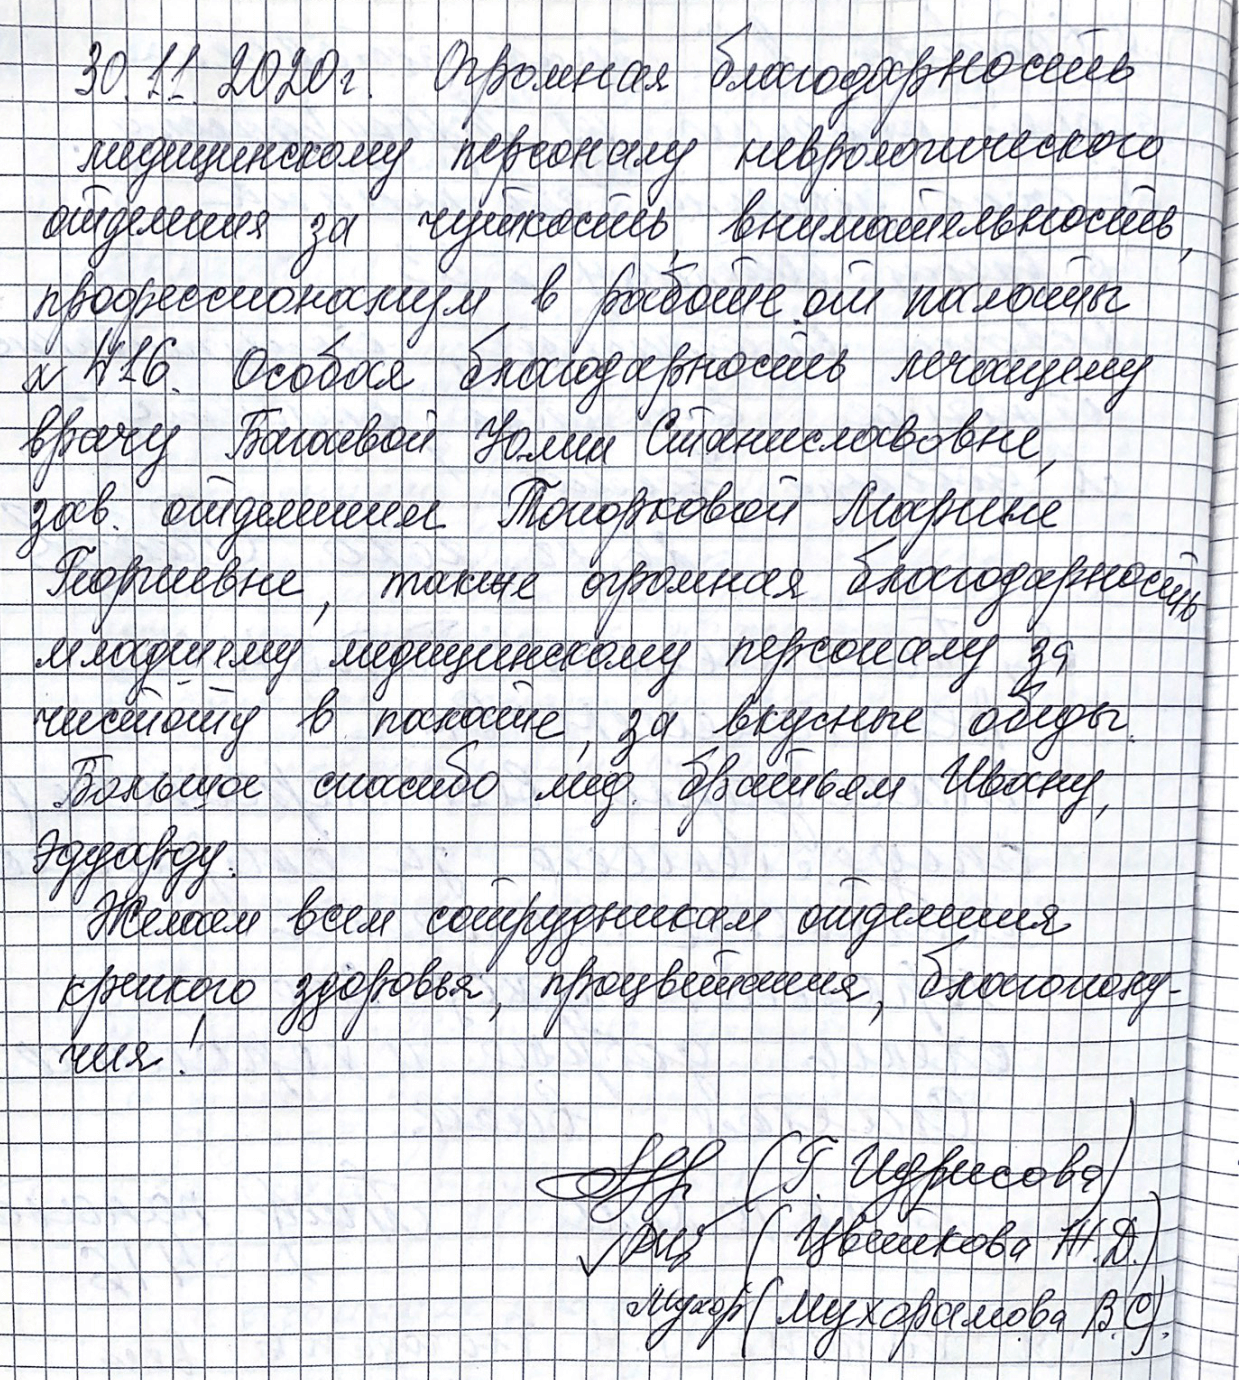 30.11.2020г. Огромная благодарность
медицинскому персоналу неврологического
отделения за чуткость, внимательность,
профессионализм в работе от палаты
N 416. Особая благодарность лечащему
врачу Багаевой Юлии Станиславовне,
зав. отделением Топорковой Марине
Георгиевне, также огромная благодарность
младшему медицинскому персоналу за
чистоту в палате, за вкусные обеды.
Большое спасибо мед. братьям Ивану,
Эдуарду.
Желаем всем сотрудникам отделения
крепкого здоровья, процветания, благополу-
чия!
(Г. Идрисова)
(Цветкова Ж.Д.)
Мухар (Мухарамова В.С).